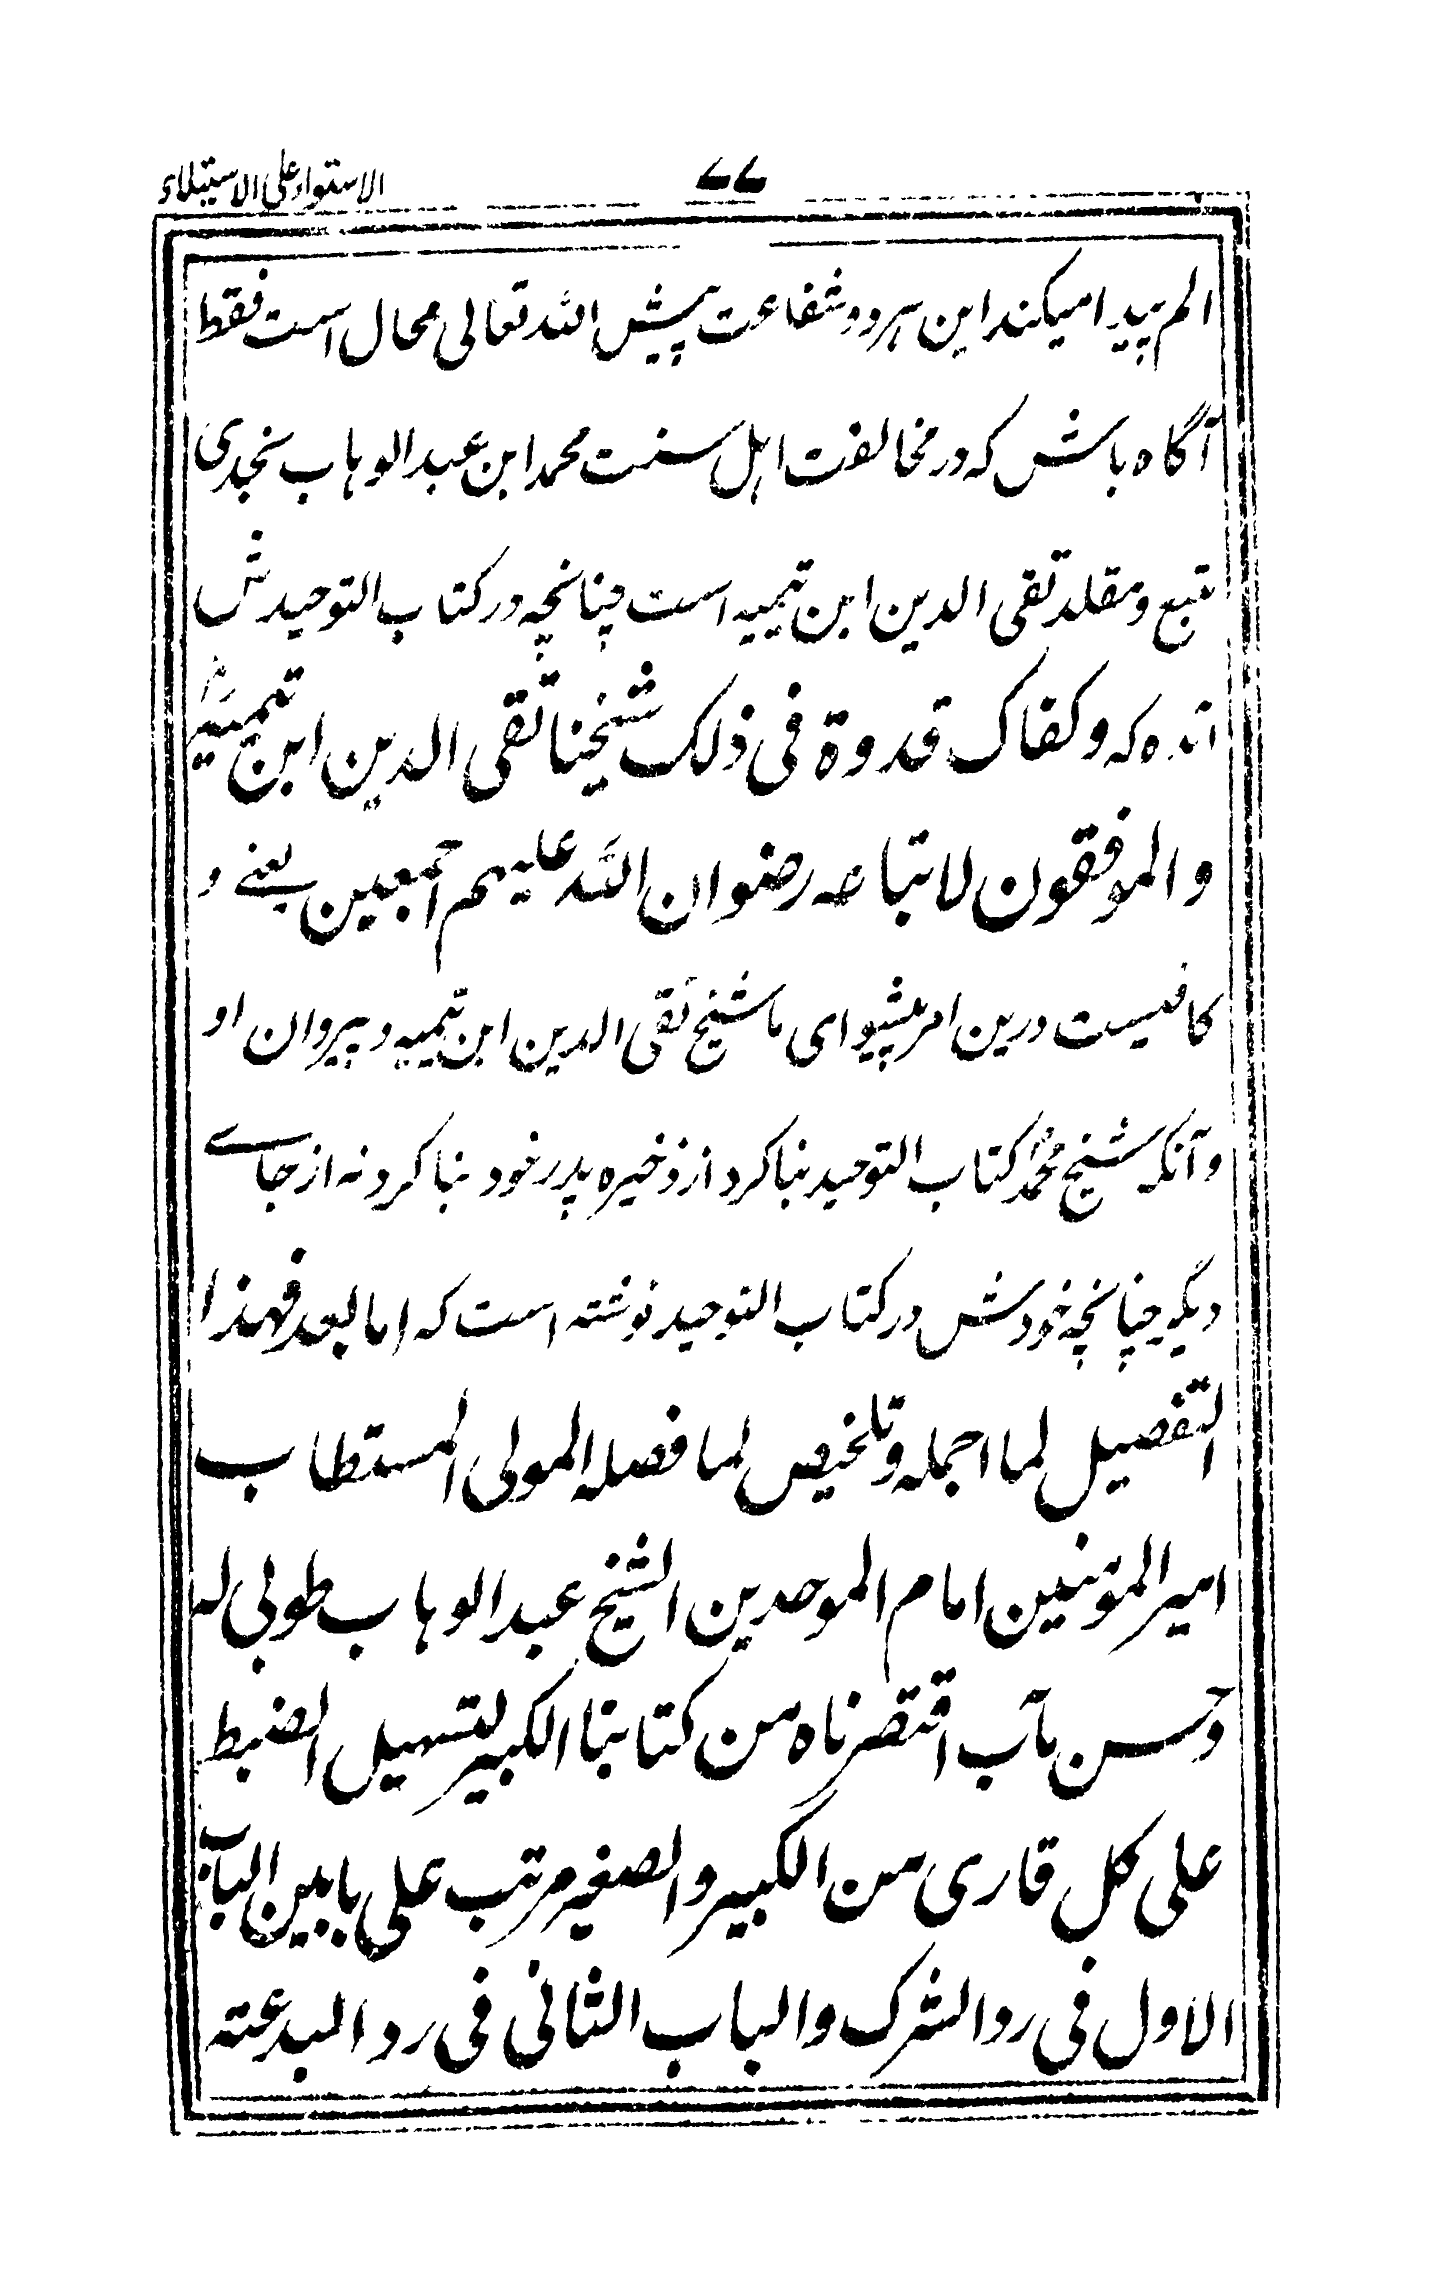 الاستواء علی الاستیلاء
٧٧
الم پیدا میکند این هردو شفاعت پیش الله تعالی محال است فقط
آگاه باش که در مخالفت اهل سنت محمد ابن عبدالوهاب نجدی
تتبع و مقلد تقی الدین ابن تیمیه است چنانچه در کتاب التوحیدش
آنده که وکفاک قدوة فی ذلک شیخنا تقی الدین ابن تیمیة
والموفقون لاتباعه رضوان الله علیهم اجمعین یعنے و
کافیست درین امر پیشوای ما شیخ تقی الدین ابن تیمیه و پیروان او
و آنکه شیخ محمد کتاب التوحید بنا کرد از ذخیره پدر خود بنا کرد نه از جاے
دیگر چنانچه خودش در کتاب التوحید نوشته است که اما بعد فهذا
التفصیل لما اجمله و تلخیص لما فصله المولی المستطاب
امیر المؤمنین امام الموحدین الشیخ عبدالوهاب طوبی له
وحسن مآب اقتصرناه من کتابنا الکبیر لتسهیل الضبط
علی کل قاری من الکبیر والصغیر مرتب علی بابین الباب
الاول فی رد الشرک والباب الثانی فی رد البدعته